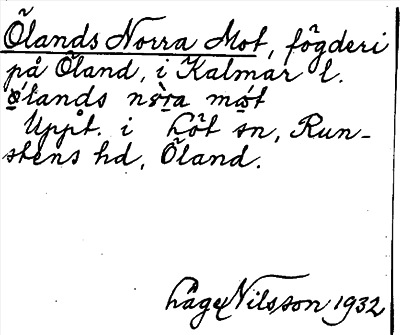 Ölands Norra Mot, fögderi
på Öland, i Kalmar l.
ø̀lands nèr̀a mót
Uppt. i Löt sn, Run-
stens hd, Öland.
Låge Nilsson 1932